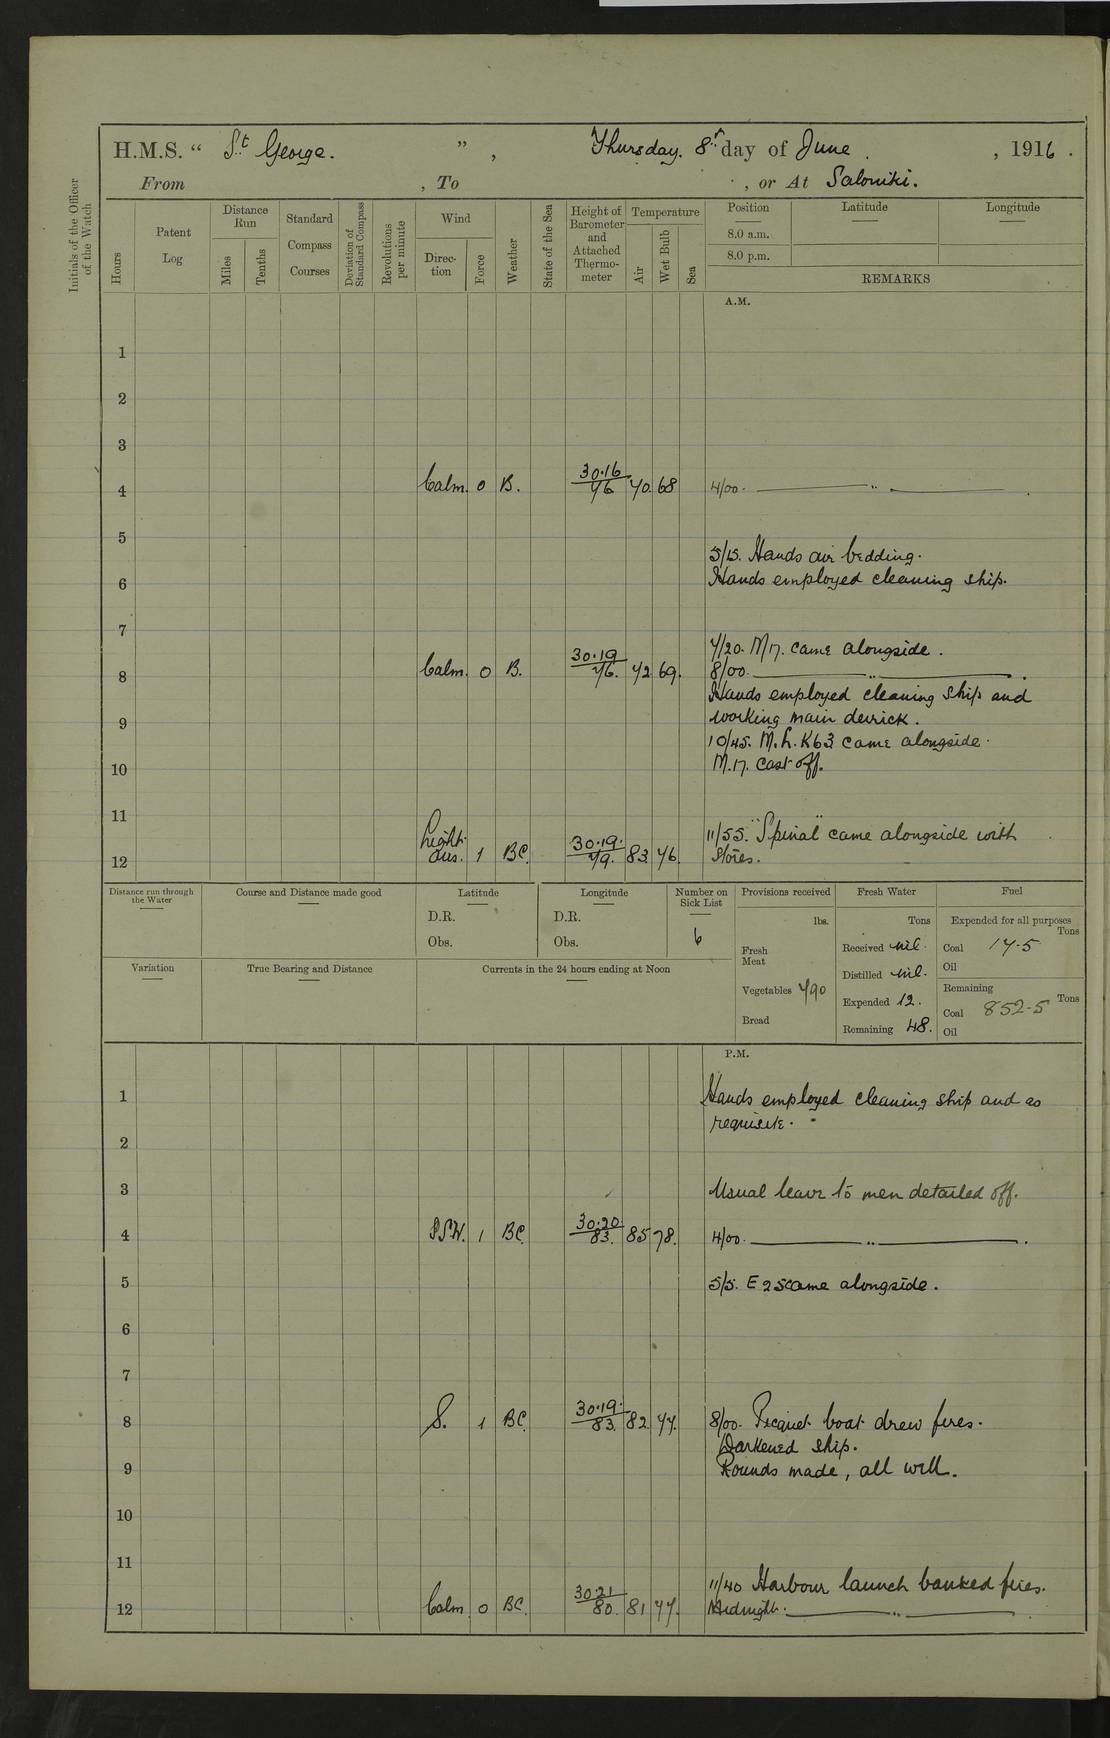 H.M.S. “ St George. ” , Thursday. 8th day of June , 1916 .
From , To , or At Saloniki.
Initials of the Officer of the Watch
Hours
Patent Log
Distance Run
Miles
Tenths
Standard Compass Courses
Deviation of Standard Compass
Revolutions per minute
Wind
Direction
Force
Weather
State of the Sea
Height of Barometer and Attached Thermometer
Temperature
Air
Wet Bulb
Sea
Position Latitude Longitude
8.0 a.m.
8.0 p.m.
REMARKS
A.M.
1
2
3
4 Calm. 0 B. 30.16 76 70. 68 4/00. — „ —
5
5/15. Hands air bedding.
6 Hands employed cleaning ship.
7
7/20. M17. came alongside.
8 Calm. 0 B. 30.19 76. 72 69. 8/00. — „ —
Hands employed cleaning ship and
9 working main derrick.
10/45. M.L. K63 came alongside.
10 M.17. cast off.
11
Light 11/55. "Spinal" came alongside with
12 airs. 1 BC. 30.19. 79. 83 76. Stores.
Distance run through the Water
Course and Distance made good
Latitude
D.R.
Obs.
Longitude
D.R.
Obs.
Number on Sick List
6
Provisions received
lbs.
Fresh Meat
Vegetables 790
Bread
Fresh Water
Tons
Received nil.
Distilled nil.
Expended 12.
Remaining 48.
Fuel
Expended for all purposes
Tons
Coal 17.5
Oil
Remaining
Tons
Coal 852.5
Oil
Variation
True Bearing and Distance
Currents in the 24 hours ending at Noon
P.M.
1 Hands employed cleaning ship and as
requisite.
2
3 Usual leave to men detailed off.
4 SSW. 1 BC. 30.20 83. 85 78. 4/00. — „ —
5 5/5. E2 came alongside.
6
7
8 S. 1 BC. 30.19. 83. 82 77. 8/00. Picquet boat drew fires.
Darkened ship.
9 Rounds made, all well.
10
11
11/40 Harbour launch banked fires.
12 Calm 0 BC. 30.21 80. 81 77. Midnight. — „ —